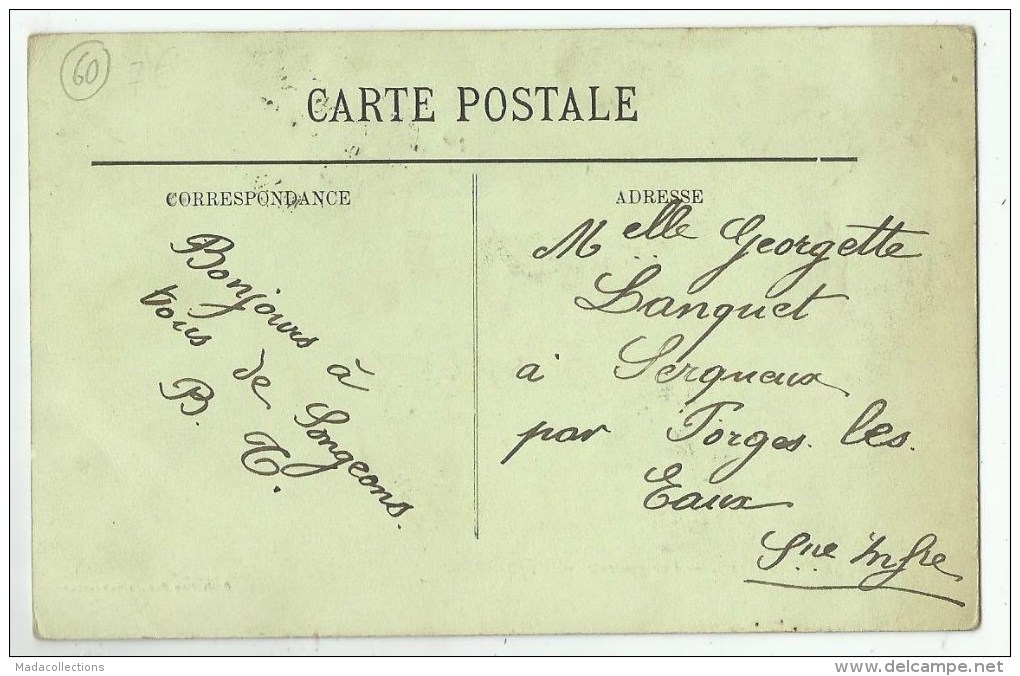 60
7€
CARTE POSTALE
CORRESPONDANCE
ADRESSE
Bonjours à
tous de Songeons.
B. T.
Melle Georgette
Languet
à Serqueux
par Forges. les.
Eaux
Sne Infre
Madacollections
www.delcampe.net